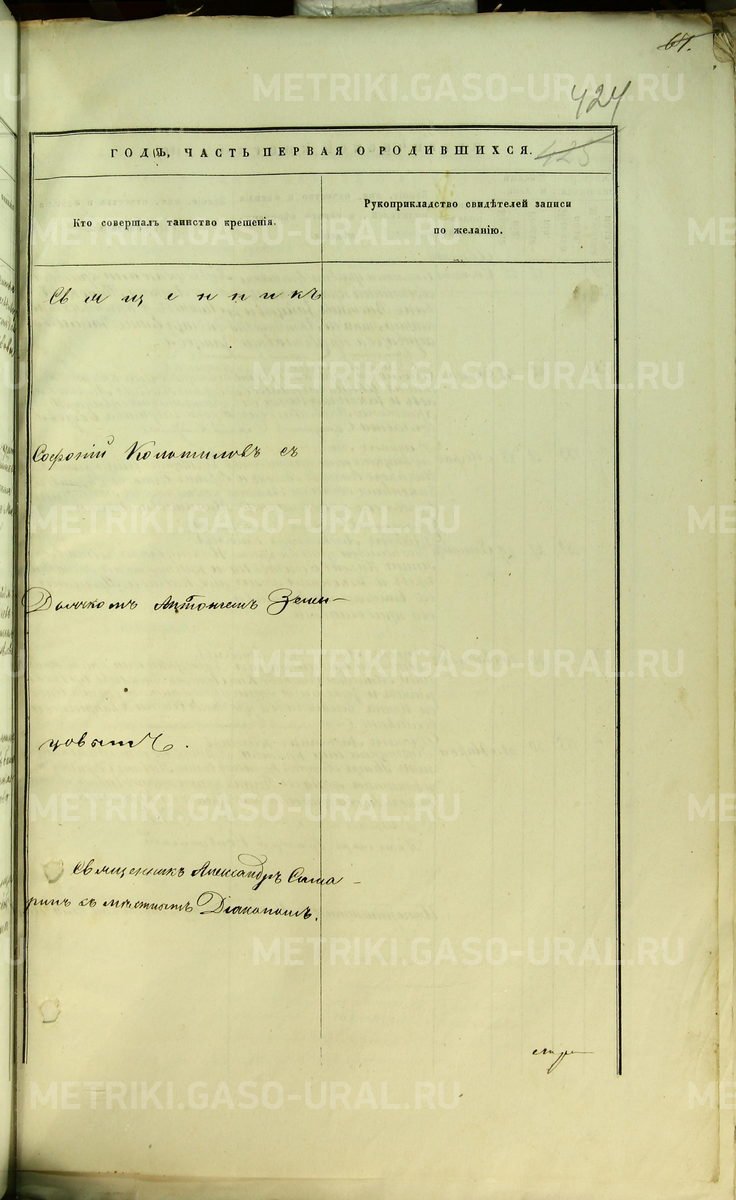 64.
424
ГОДЪ, ЧАСТЬ ПЕРВАЯ О РОДИВШИХСЯ.
425
Кто совершалъ таинство крещенія.
Рукоприкладство свидѣтелей записи
по желанію.
Священникъ
Софоній Колотиловъ съ
Дьячкомъ Антоніемъ Земля-
цовымъ.
Священникъ Александръ Сама-
ринъ съ мѣстнымъ Діакономъ.
METRIKI.GASO-URAL.RU